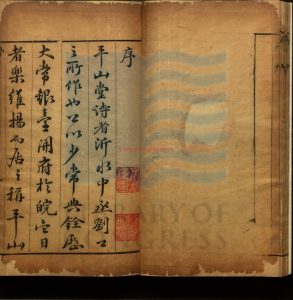 序
平山堂詩者沂水中丞劉公
之所作也公以少常典銓歷
大常銀臺開府於皖它日
者樂維揚而居之稱平山
LIBRARY OF
CONGRESS